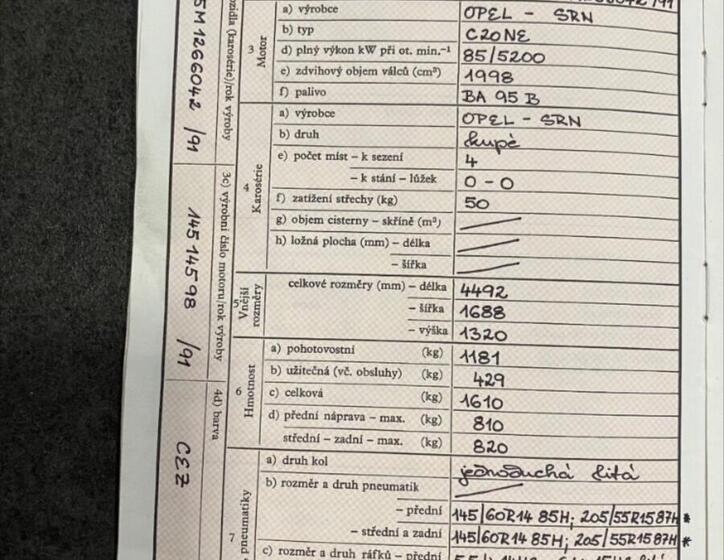 a) výrobce OPEL - SRN
b) typ C20NE
3 Motor
d) plný výkon kW při ot. min.⁻¹ 85/5200
e) zdvihový objem válců (cm³) 1998
f) palivo BA 95 B
a) výrobce OPEL - SRN
b) druh kupé
4 Karosérie
e) počet míst – k sezení 4
– k stání – lůžek 0 - 0
f) zatížení střechy (kg) 50
g) objem cisterny – skříně (m³)
h) ložná plocha (mm) – délka
– šířka
5 Vnější rozměry
celkové rozměry (mm) – délka 4492
– šířka 1688
– výška 1320
6 Hmotnost
a) pohotovostní (kg) 1181
b) užitečná (vč. obsluhy) (kg) 429
c) celková (kg) 1610
d) přední náprava – max. (kg) 810
střední – zadní – max. (kg) 820
7 pneumatiky
a) druh kol jednoduchá litá
b) rozměr a druh pneumatik
– přední 145/60R14 85H; 205/55R15 87H*
– střední a zadní 145/60R14 85H; 205/55R15 87H*
c) rozměr a druh ráfků – přední
(karosérie)/rok výroby
5M1266042 /91
3c) výrobní číslo motoru/rok výroby
14514598 /91
4d) barva